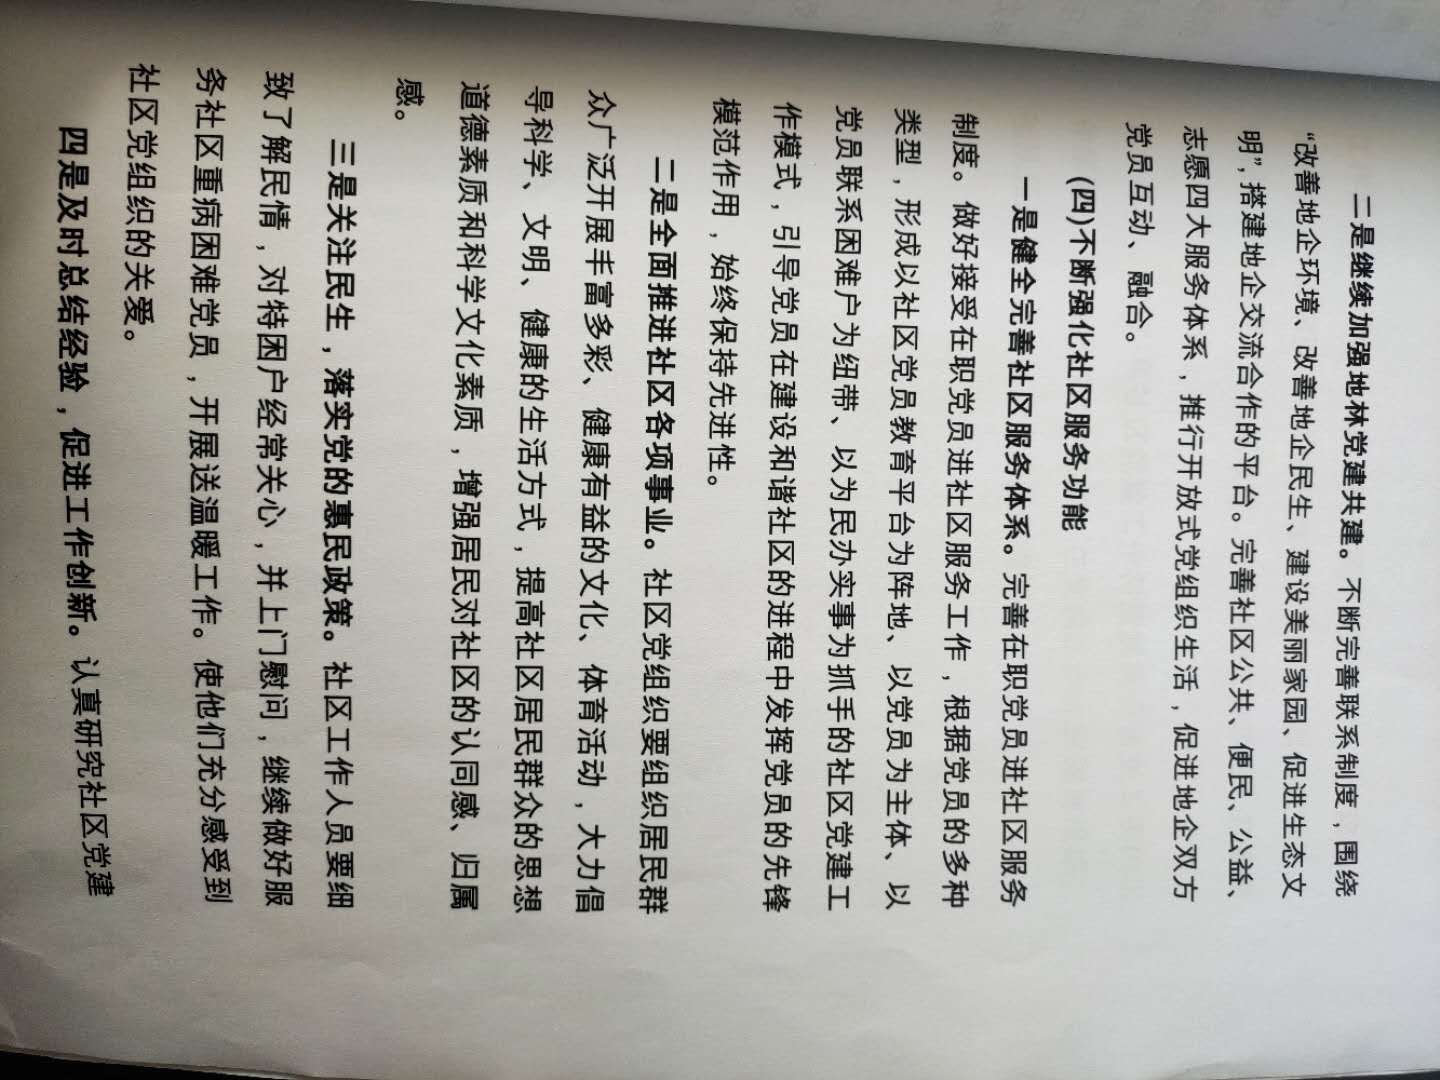 二是继续加强地林党建共建。不断完善联系制度，围绕
“改善地企环境、改善地企民生、建设美丽家园、促进生态文
明”，搭建地企交流合作的平台。完善社区公共、便民、公益、
志愿四大服务体系，推行开放式党组织生活，促进地企双方
党员互动、融合。
(四)不断强化社区服务功能
一是健全完善社区服务体系。完善在职党员进社区服务
制度。做好接受在职党员进社区服务工作，根据党员的多种
类型，形成以社区党员教育平台为阵地、以党员为主体、以
党员联系困难户为纽带、以为民办实事为抓手的社区党建工
作模式，引导党员在建设和谐社区的进程中发挥党员的先锋
模范作用，始终保持先进性。
二是全面推进社区各项事业。社区党组织要组织居民群
众广泛开展丰富多彩、健康有益的文化、体育活动，大力倡
导科学、文明、健康的生活方式，提高社区居民群众的思想
道德素质和科学文化素质，增强居民对社区的认同感、归属
感。
三是关注民生，落实党的惠民政策。社区工作人员要细
致了解民情，对特困户经常关心，并上门慰问，继续做好服
务社区重病困难党员，开展送温暖工作。使他们充分感受到
社区党组织的关爱。
四是及时总结经验，促进工作创新。认真研究社区党建